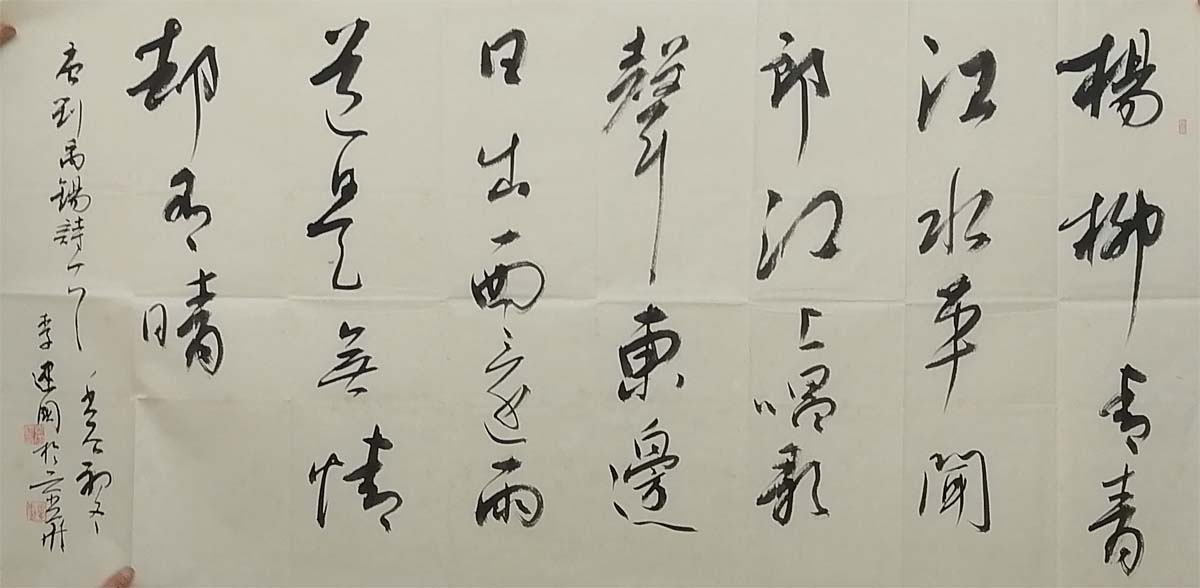 楊柳青青
江水平聞
郎江上唱歌
聲東邊
日出西邊雨
道是無情
卻有晴
唐刘禹锡詩一首
李建國於